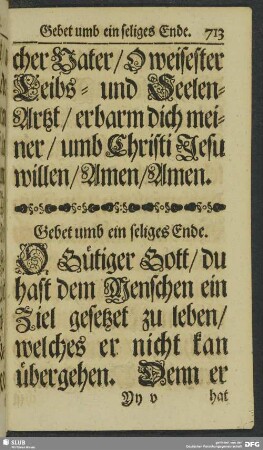 Gebet umb ein seliges Ende. 713
cher Vater/ O weisester
Leibs- und Seelen-
Artzt/ erbarm dich mei-
ner/ umb Christi Jesu
willen/ Amen/ Amen.
Gebet umb ein seliges Ende.
O Gütiger Gott/ du
hast dem Menschen ein
Ziel gesetzet zu leben/
welches er nicht kan
übergehen. Denn er
Yy v hat
SLUB